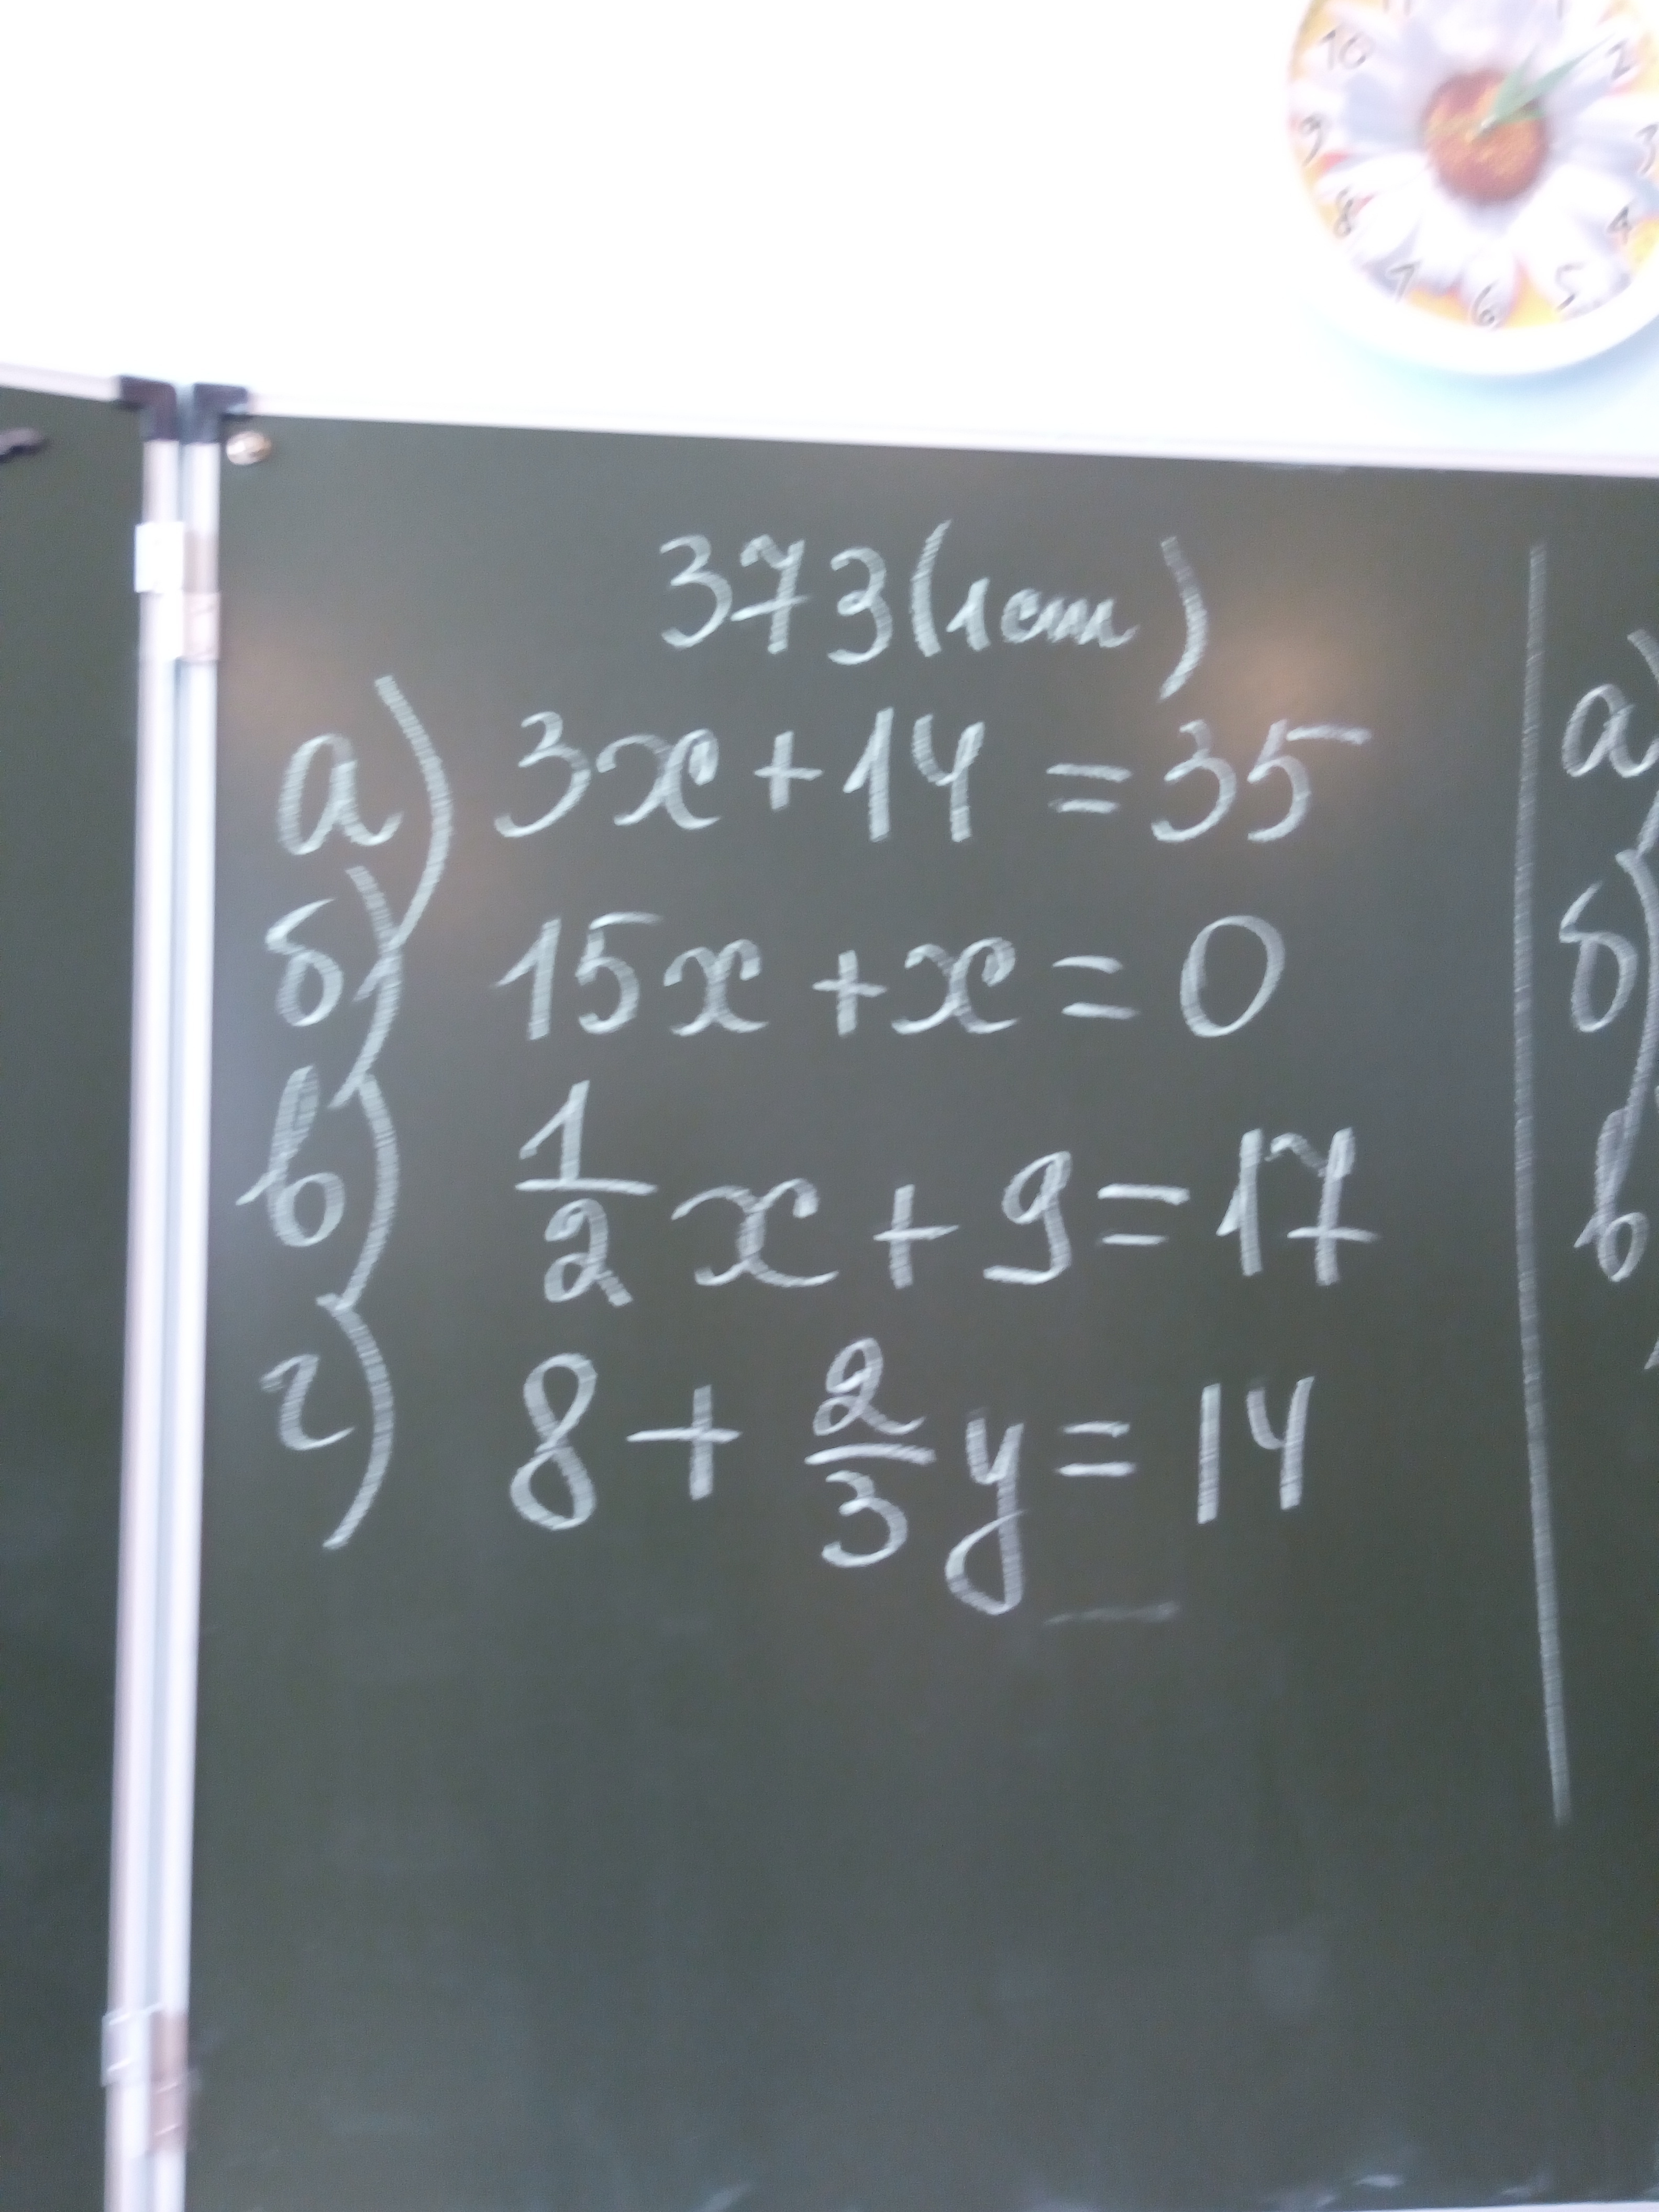 10 2
9 3
8 4
7 6 5
373 (1 ст)
а) 3x + 14 = 35
б) 15x + x = 0
в) 1/2 x + 9 = 17
г) 8 + 2/3 y = 14
а)
б)
в